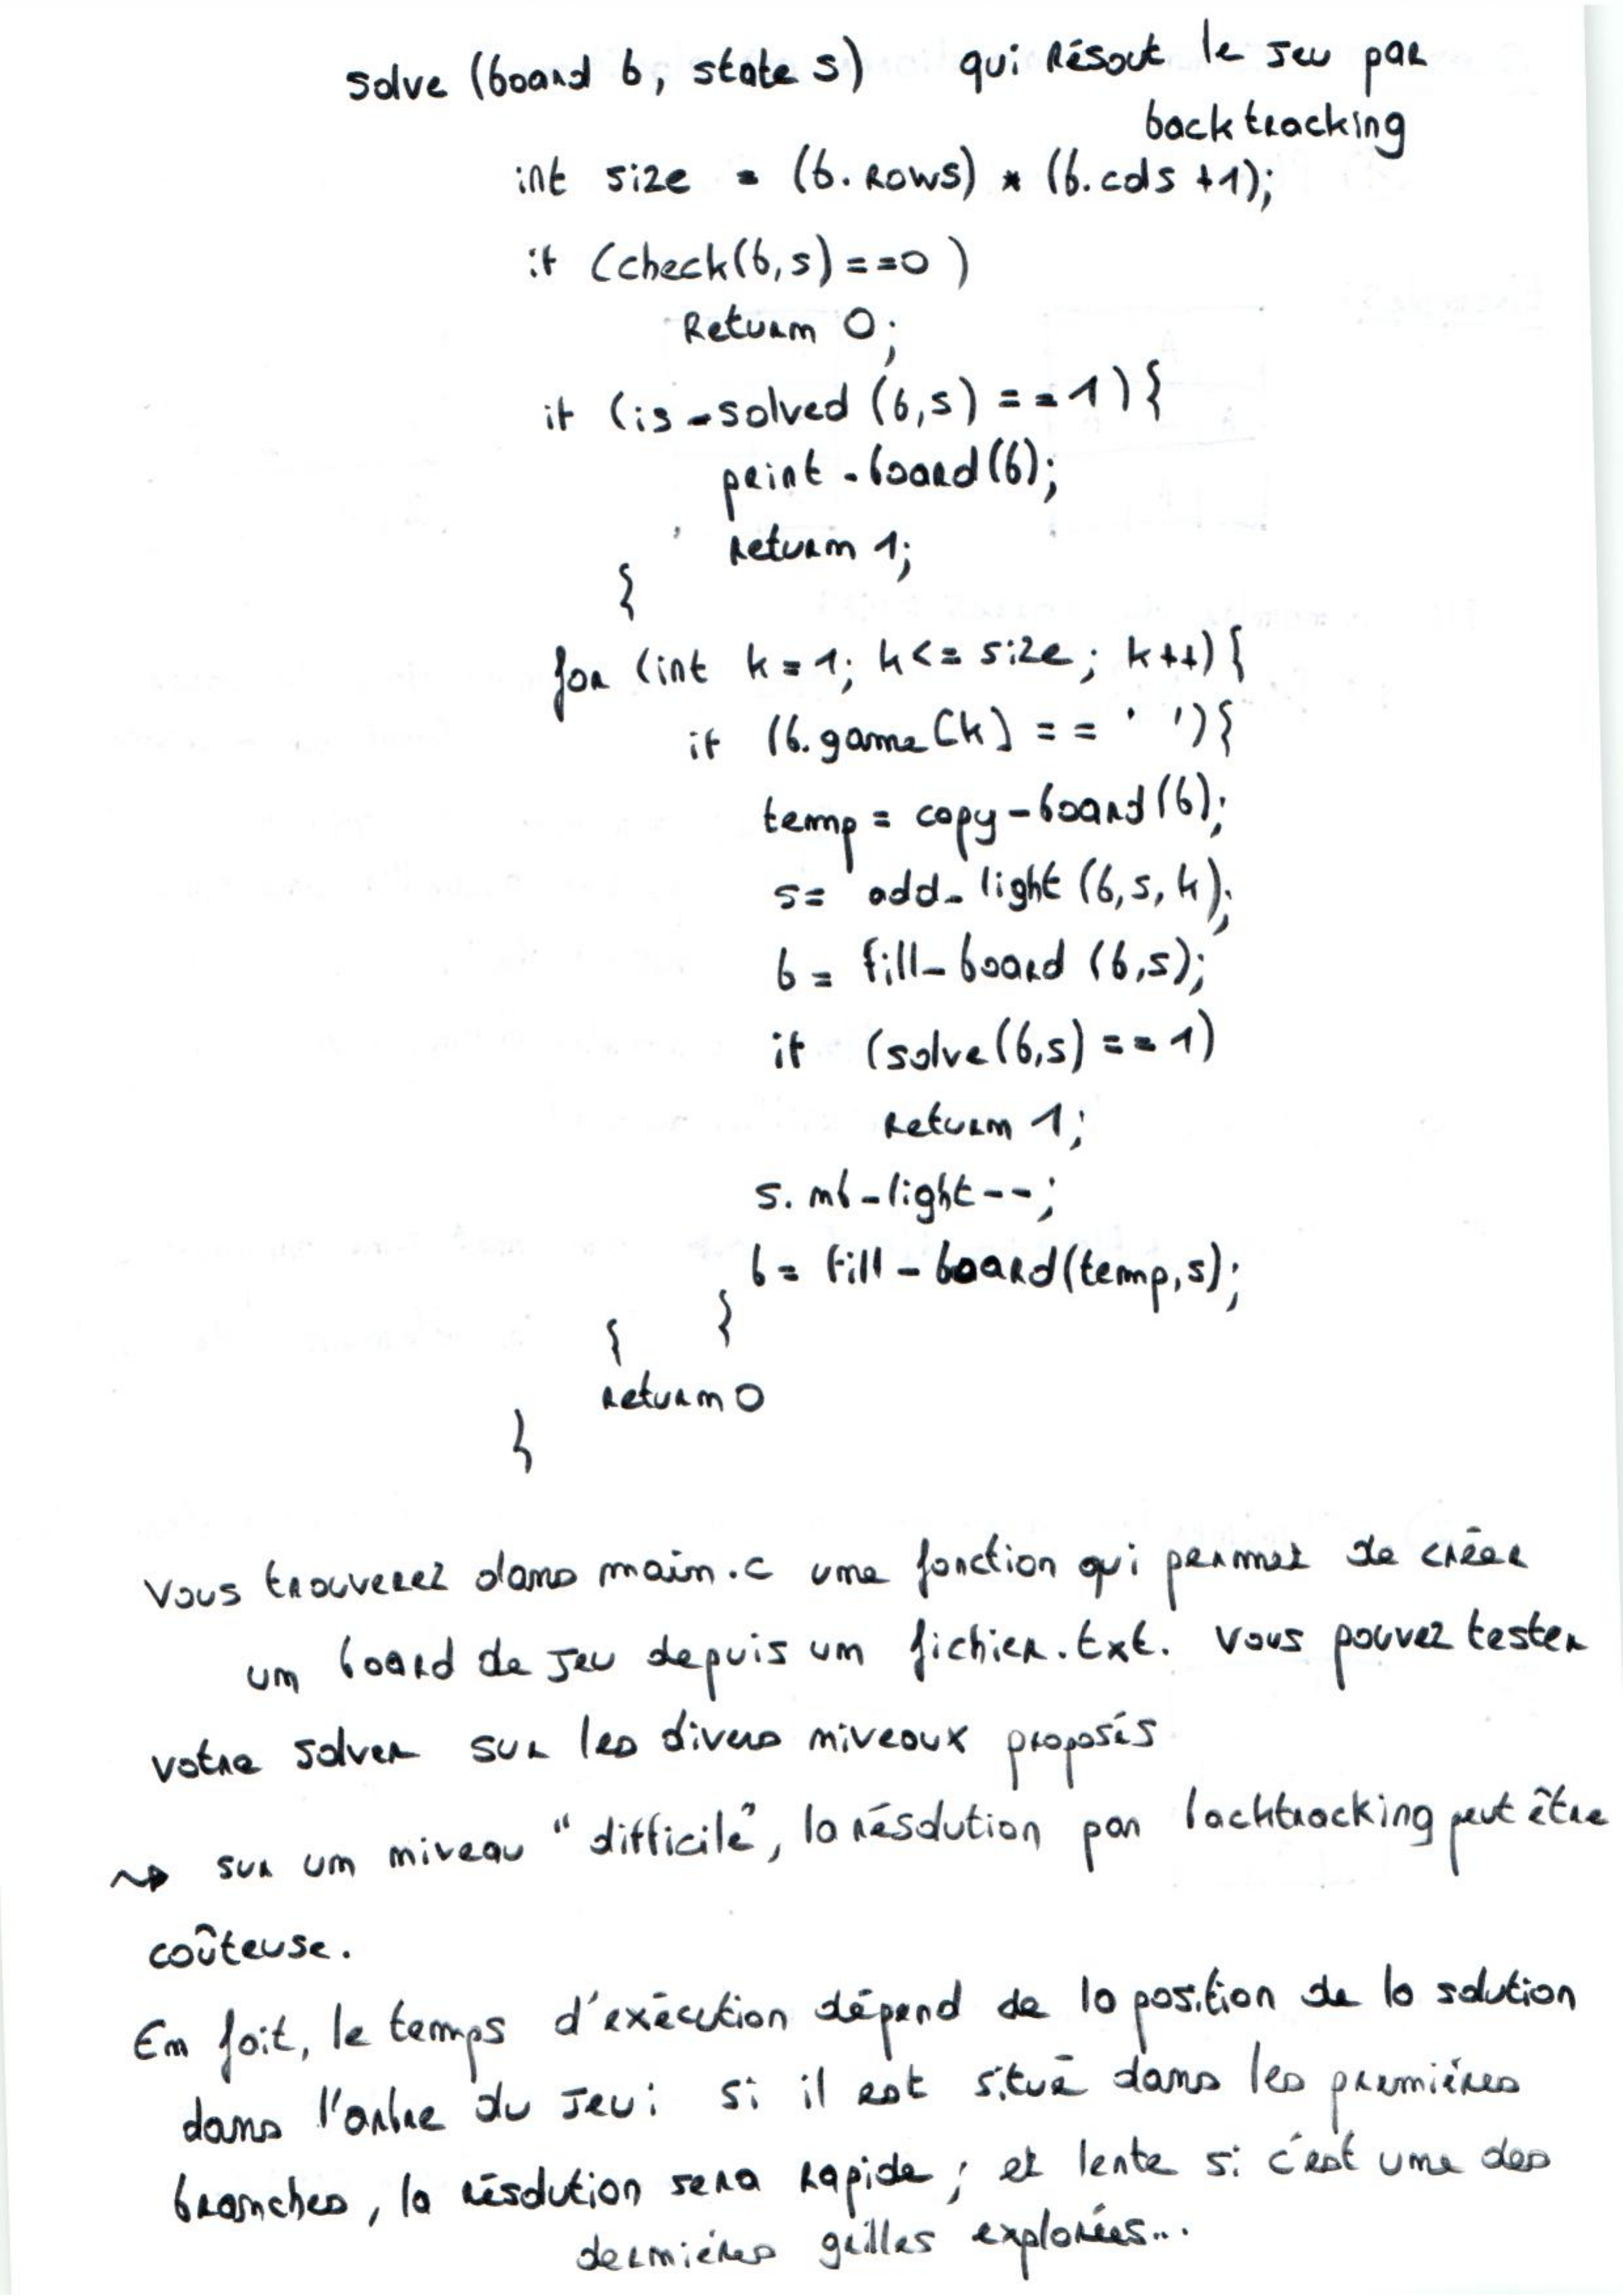 solve (board b, state s) qui résout le jeu par
backtracking
int size = (b.rows) * (b.cols +1);
if (check(b,s) == 0 )
Return 0;
if (is_solved (b,s) == 1) {
print_board(b);
return 1;
}
for (int k = 1; k <= size; k++) {
if (b.game[k] == ' ') {
temp = copy_board(b);
s = add_light (b,s,k);
b = fill_board (b,s);
if (solve(b,s) == 1)
return 1;
s. nb_light--;
b = fill_board(temp,s);
}
}
return 0
}
Vous trouverez dans main.c une fonction qui permet de créer
un board de jeu depuis un fichier.txt. Vous pouvez tester
votre solver sur les divers niveaux proposés
↝ sur un niveau "difficile", la résolution par backtracking peut être
coûteuse.
En fait, le temps d'exécution dépend de la position de la solution
dans l'arbre du jeu: si il est situé dans les premières
branches, la résolution sera rapide; et lente si c'est une des
dernières grilles explorées...